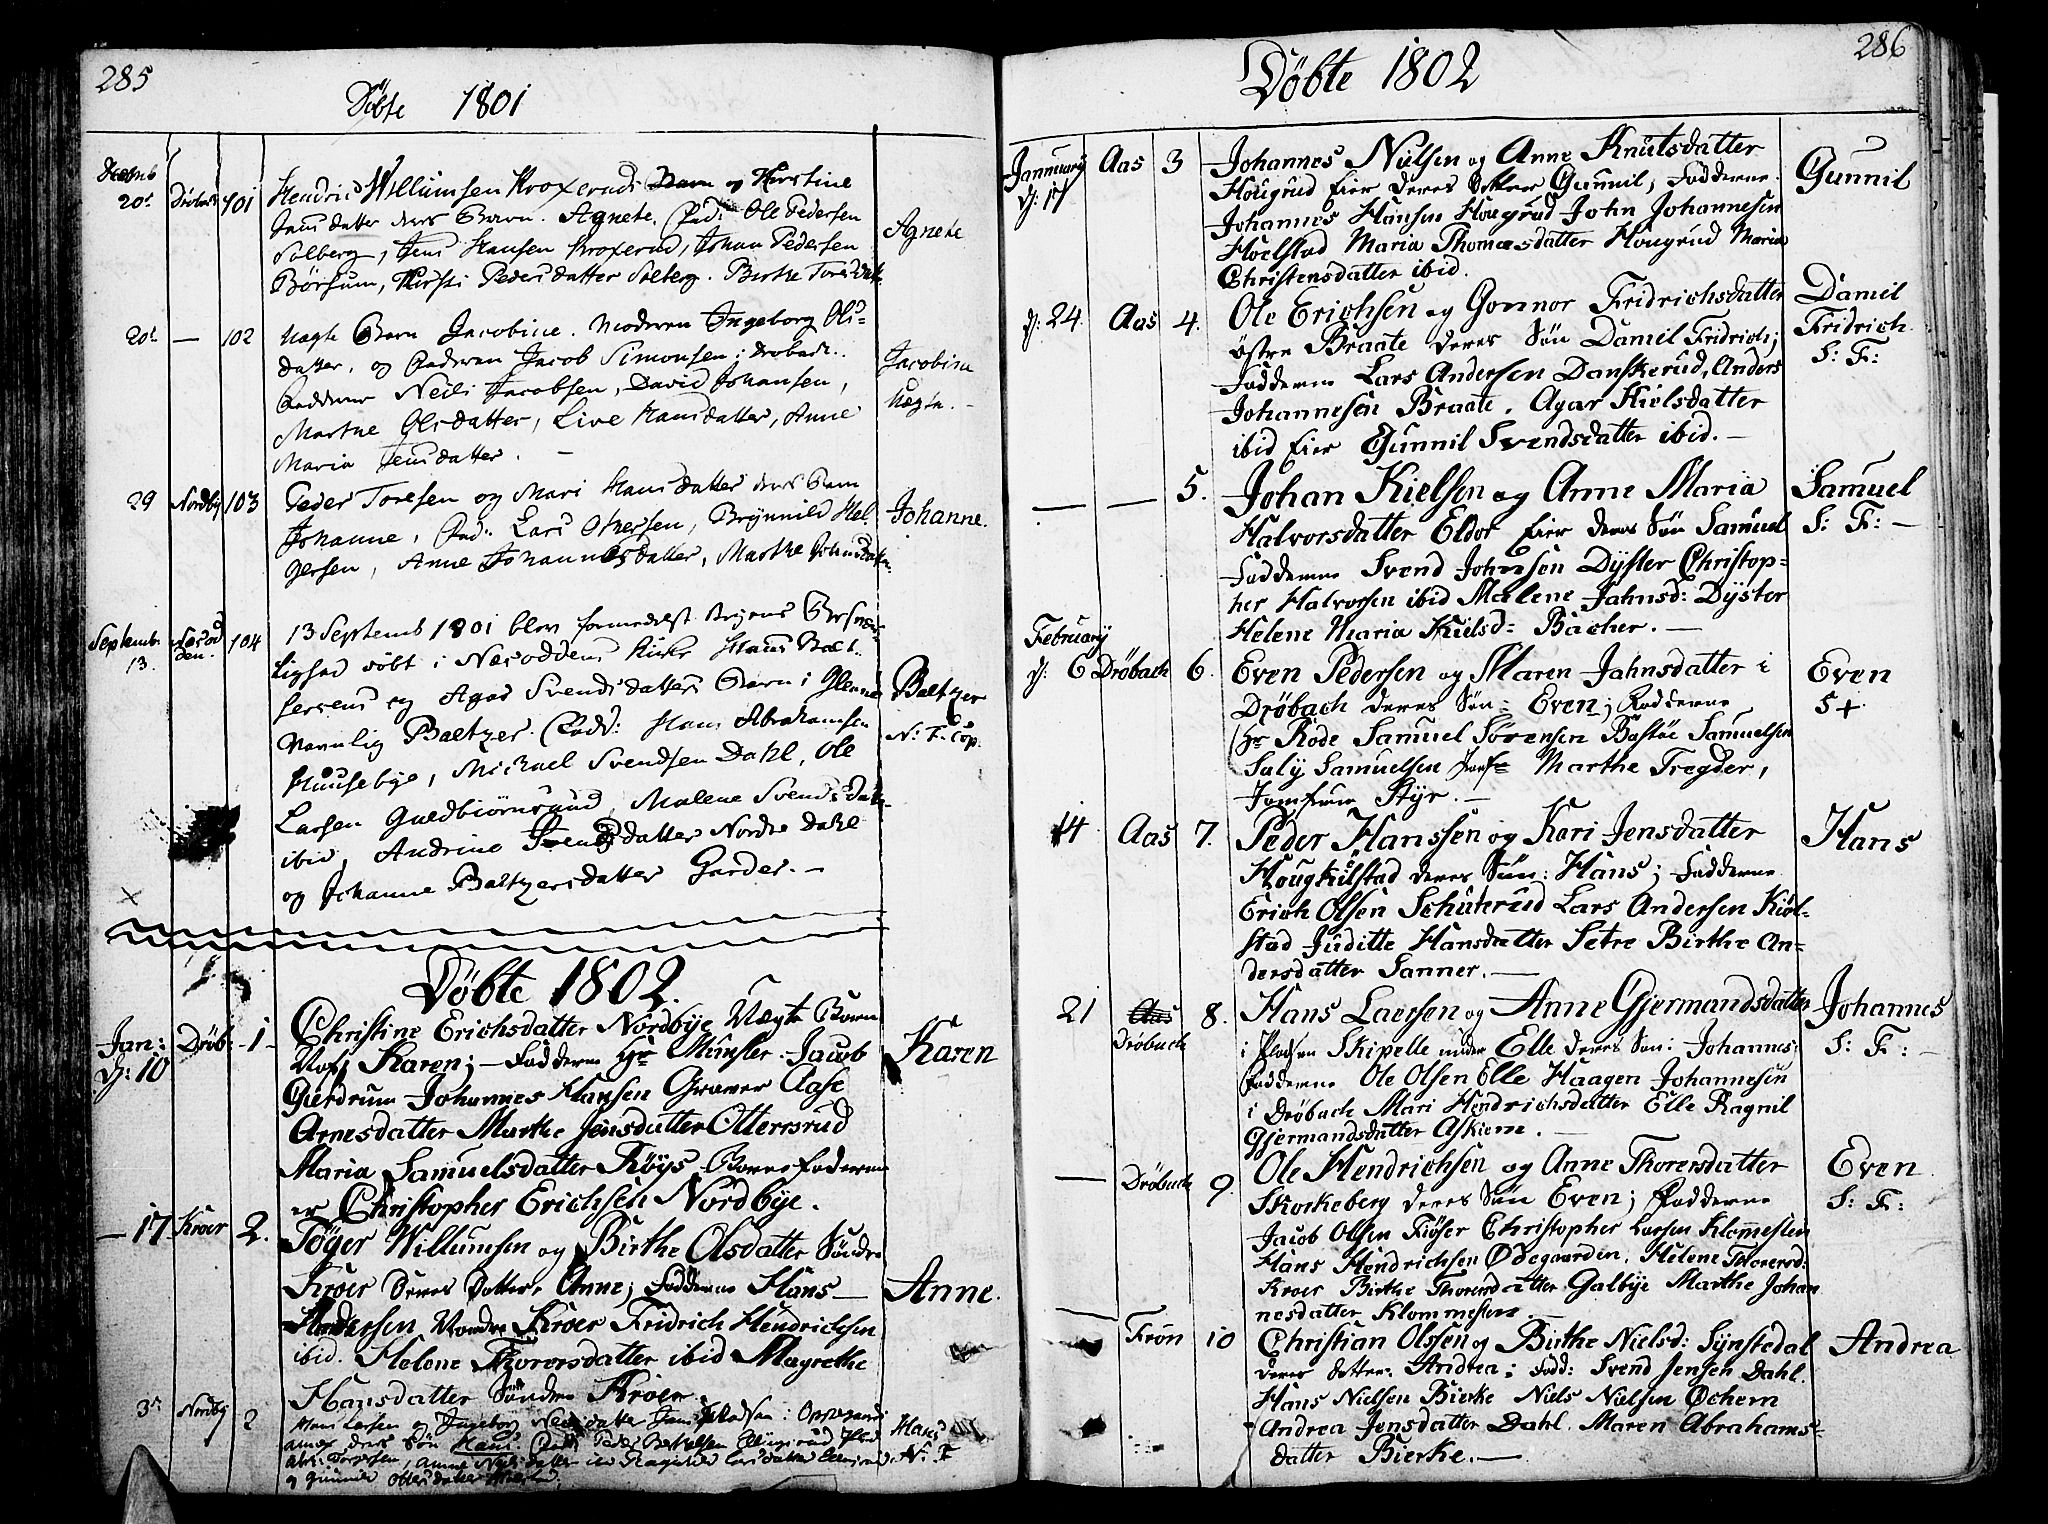 285
Döbte 1801
Decmb
20d Dröbac 101 Hendric Willumsen Kroxeruds Barn og Kirstine
Jansdatter deres Barn. Agnete. Fad: Ole Pedersen
Agnete
Solberg, Jens Hansen Kroxerud, Johan Pedersen
Börsum, Kirsti Pedersdatter Solberg. Birthe Toresdatt.
20d — 102 Uægte Barn Jacobine. Moderen Ingeborg Ols-
datter, og Faderen Jacob Simonsen i Drobach.
Jacobine
Fadderne Neils Jacobsen, David Johansen,
Uægte.
Marthe Olsdatter, Live Hansdatter, Anne
Maria Jensdatter. —
29 Nordby 103 Peder Toresen og Mari Hansdatter deres Barn
Johanne.
Johanne, Fad: Lars Olversen, Brynnild Hel-
gersen, Anne Johannesdatter, Marthe Johnsdatter.
Septembr. 13. Næsodden. 104 13 Septemb 1801 blev formedelst Veyens
lighed döbt i Næsoddens Kirke Hans Balt-
sersens og Agas Svendsdatters Barn i Glenne
Baltzer
Navnlig Baltzer. Fadd: Hans Abrahamsen
N: F. Cop.
Huusebye, Michael Svendsen Dahl, Ole
Larsen Guldbiörnsrud, Malene Svendsdatter
ibid, Andrine Svendsdatter Nordre Dahl
og Johanne Baltzersdatter Garder. —
Döbte 1802.
Jan: D: 10 Dröb: 1 Christine Erichsdatter Nordbÿe Uægte Barn
Karen
Karen; — Fadderne Hr Munster Jacob
Gurdrum Johannes Hansen Græver Aase
Arnesdatter Marthe Jensdatter Ottersrud
Maria Samuelsdatter Röÿs Barnefaderen
er Christopher Erichsen Nordbye.
— 17 Kroer 2. Töger Willumsen og Birthe Olsdatter Söndre
Kroer Deres Datter, Anne; Fadderne Hans
Anne.
Andersen Nordre Kroer Fridrich Hendrichsen
ibid. Helene Thorersdatter ibid Magrethe
Hansdatter Söndre Kroer.
3d Nordby 2 Hans Larsen og Ingeborg Nielsdatter
Hans
N: F
deres Sön Hans. Fadd: Peder
286
Döbte 1802
Januuarÿ D: 17 Aas 3 Johannes Nielsen og Anne Knutsdatter
Gunnil
Hougrud Eier deres Datter Gunnil; Fadderne.
Johannes Hansen Hougrud John Johannesen
Hoelstad Maria Thomæsdatter Hougrud Maria
Christensdatter ibid.
D: 24. Aas 4. Ole Erichsen og Gonnor Fridrichsdatter
Daniel
Fridrich.
S: F:
östre Braate deres Sön Daniel Fridrich;
Fadderne Lars Andersen Danskerud, Anders
Johannesen Braate. Agar Kielsdatter
ibid Eier Gunnil Svendsdatter ibid. —
— — 5. Johan Kielsen og Anne Maria
Samuel
S: F: —
Halvorsdatter Eldor Eier deres Sön Samuel
Fadderne Svend Johnsen Dÿster Christop-
her Halvorsen ibid Malene Jahnsd: Dÿster
Helene Maria Kielsd: Bacher. —
Februarÿ
D: 6 Dröbach 6. Even Pedersen og Maren Jahnsdatter i
Even
5 +
Dröbach deres Sön: Even; Fadderne
Hr Rode Samuel Sörensen Bastöe Samuelsen
Saly Samuelsen Jomfr Marthe Tregder,
Jomfrue Stÿr. —
14 Aas 7. Peder Hanssen og Kari Jensdatter
Hans
Hougkulstad deres Sön: Hans; Fadderne
Erich Olsen Schuhrud Lars Andersen Kiöl-
stad Juditte Hansdatter Setre Birthe An-
dersdatter Sanner. —
21 Aas Dröbach 8. Hans Larsen og Anne Gjermandsdatter
Johannes
S: F: —
i Pladsen Skipelle under Elle deres Sön: Johannes;
Fadderne Ole Olsen Elle Haagen Johannesen
i Dröbach Mari Hendrichsdatter Elle Ragnil
Gjermandsdatter Askiem. —
— Dröbach 9. Ole Hendrichsen og Anne Thorersdatter
Even
S: F:
Skorkeberg deres Sön Even; Fadderne
Jacob Olsen Fiöser Christopher Larsen Klommesten
Hans Hendrichsen Ödegaarden. Helene Thorersd:
Kroer Birthe Thorersdatter Galbÿe Marthe Johan
nesdatter Klommesten.
— Frön 10 Christian Olssen og Birthe Nielsd: Sÿnstedal
Andrea
deres Datter. Andrea; Fadd: Svend Jensen Dahl.
Hans Nielsen Bierke Niels Nielsen Ochern
Andrea Jensdatter Dahl. Maren Abrahams-
datter Bierke. —